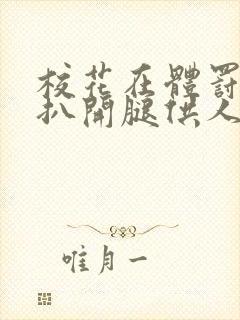 校花在體罰
扒開腿供人
唯月一